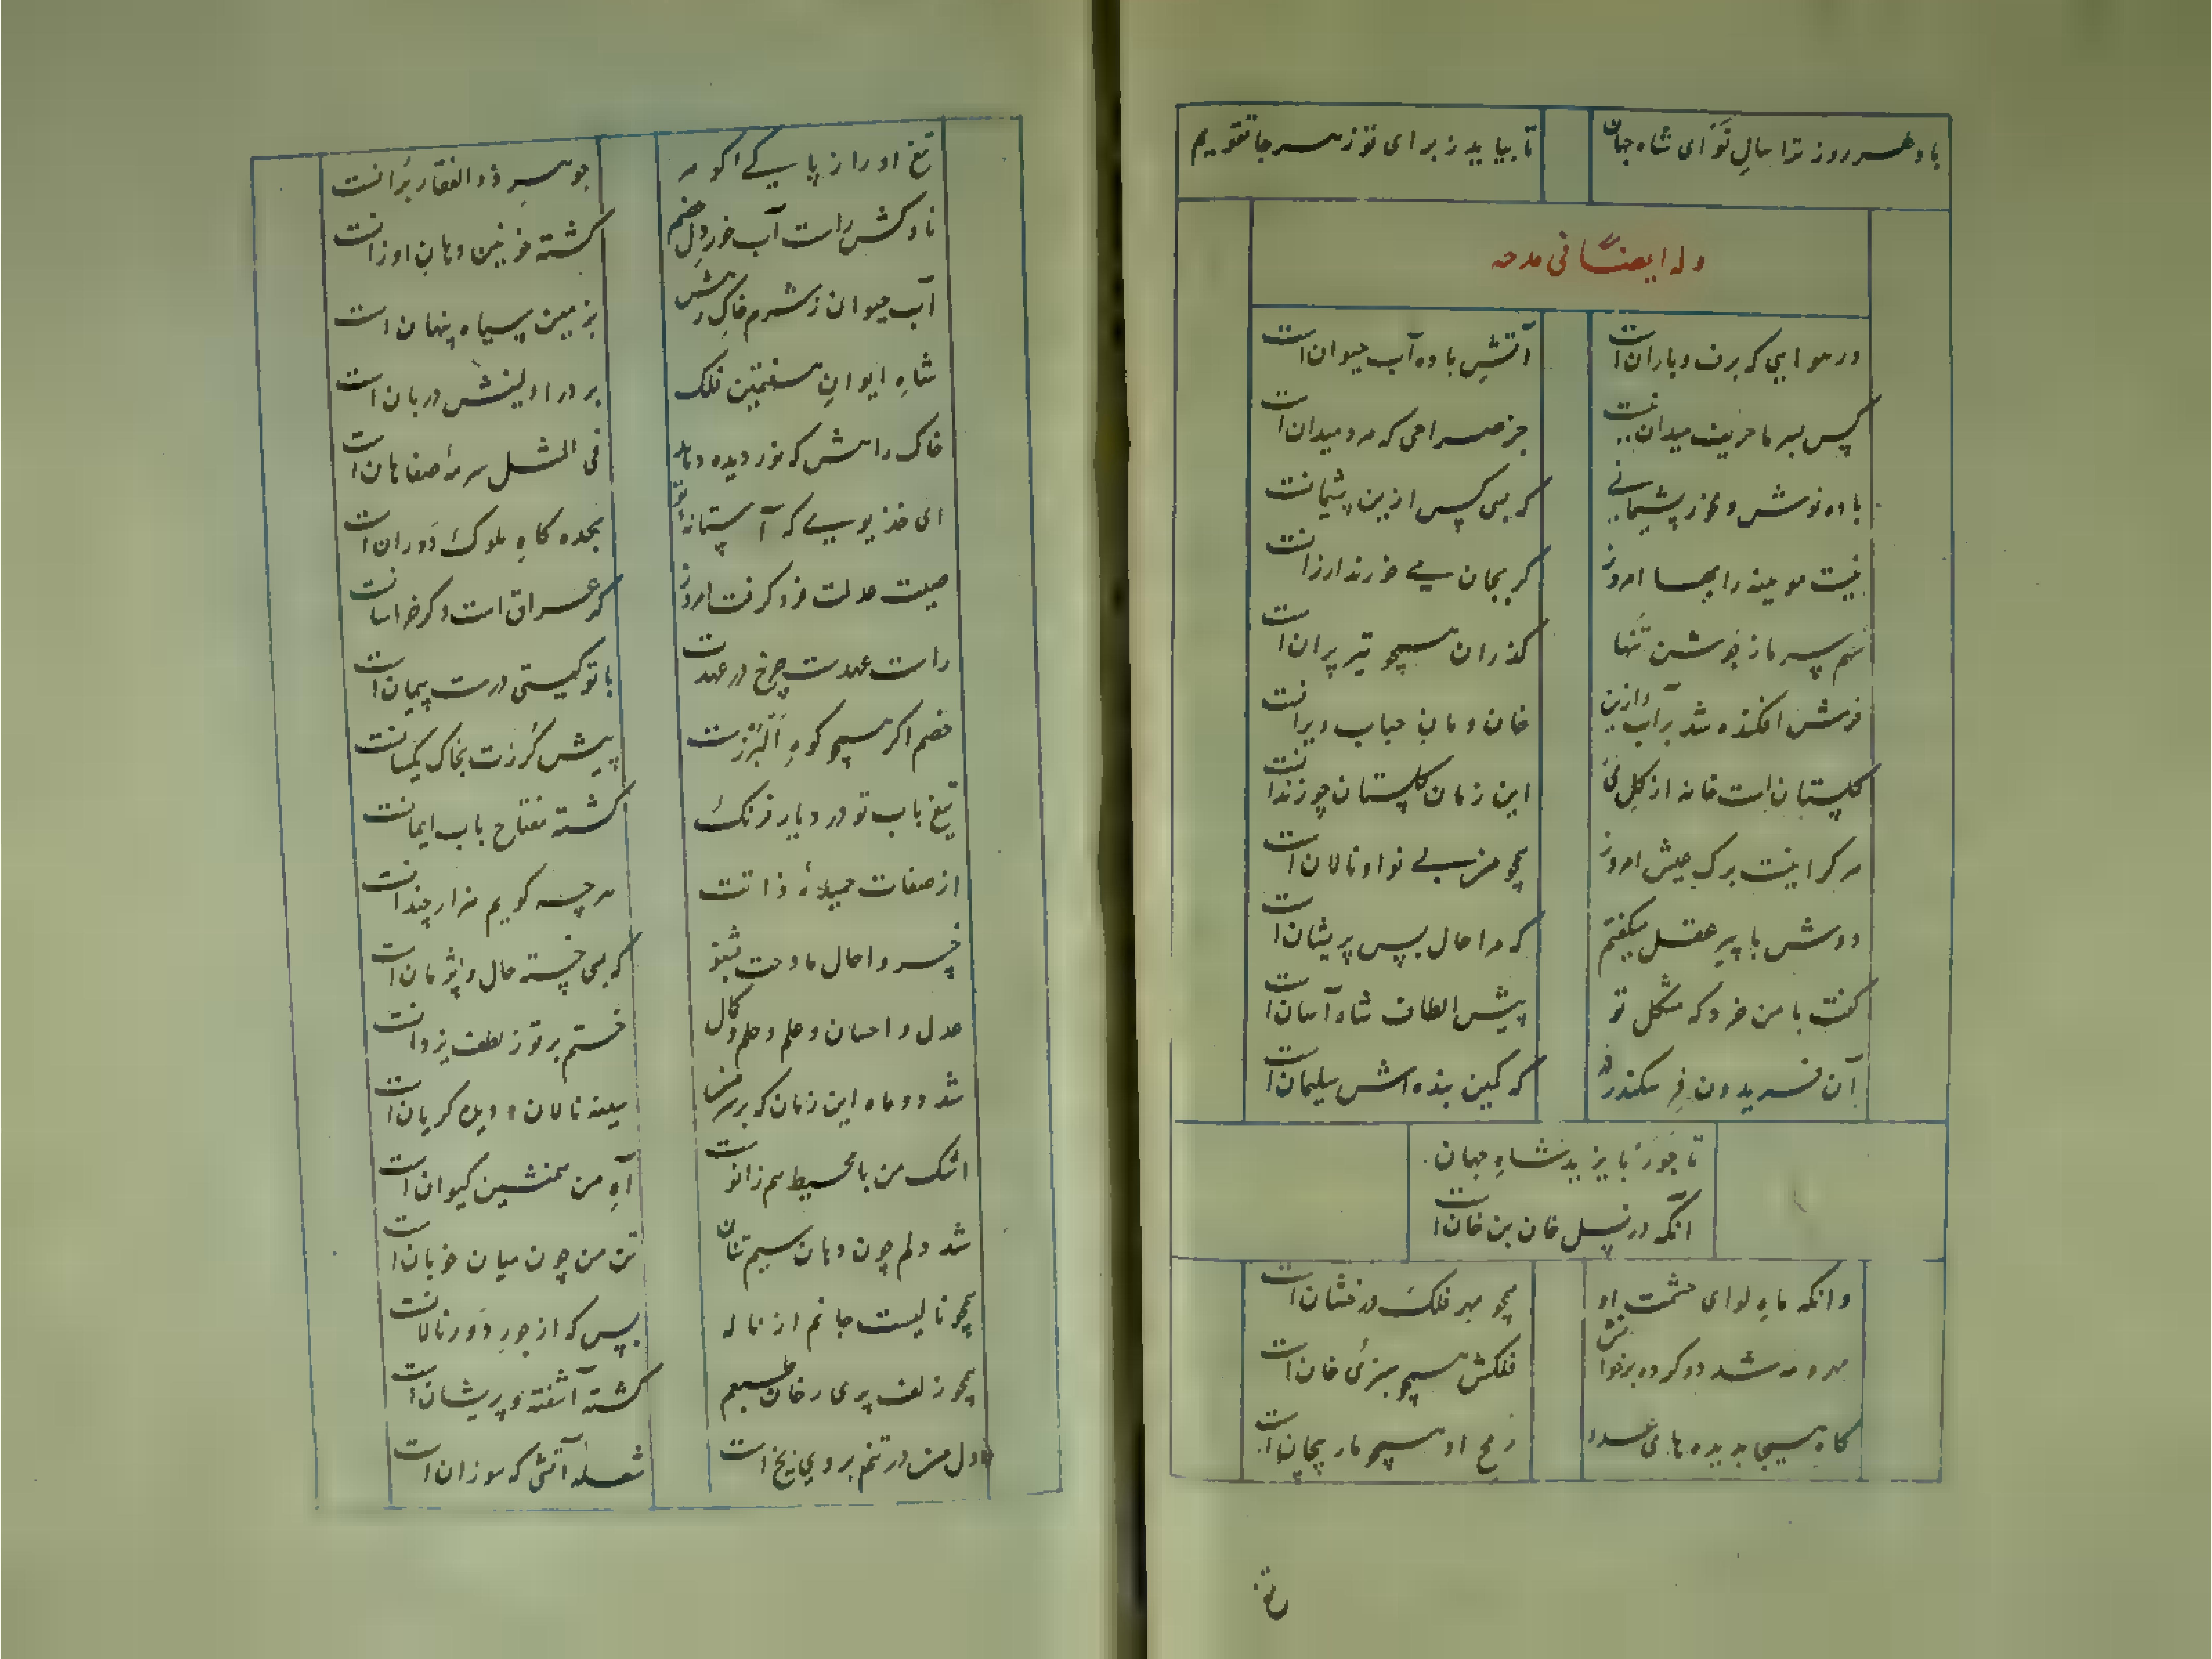 باد هر روز ترا سال نو ای شاه جهان تا بیاید ز برای تو ز هر جا تقویم
وله ایضاً فی مدحه
در هوایی که برف و باران است آتش باده آب حیوان است
کس بسرما حریف میدان نیست جز صراحی که مرد میدان است
باده نوش و مخور پشیمانی کر بسی کس ازین پشیمانست
نیست مویینه را بها امروز کر بجان می خرند ارزانست
سهم سرما ز جوشن تنها کذران همچو تیر پران است
فرش افکنده شد بر آب وازین خان و مان حباب ویرانست
کلستان است خانه از کل می این زمان کلستان چو زندانست
هر کرا نیست برک عیش امروز همچو من بی نوا و نالان است
دوش با پیر عقل میکفتم که مرا حال بس پریشان است
کفت با من خرد که مشکل تو پیش الطاف شاه آسان است
آن فریدون فر سکندر در که کمین بنده اش سلیمان است
تاجور بایزید شاه جهان
انکه در نسل خان بن خان است
وانکه ماه لوای حشمت او همچو مهر فلک درخشان است
مهر و مه شد دو کرده بر خوانش فلکش همچو سبزی خوان است
کاه هیجا بدیده های عدو رمح او همچو مار پیچان است
تیغ
تیغ او را ز پاکی کوهر جوهر ذو الفقار برانست
ناوکش راست آب خور دل خصم کشته خونین دهان او زانست
آب حیوان ز شرم خاک رهش بزمین سیاه پنهان است
شاه ایوان هفتمین فلک بر در اولینش دربان است
خاک راهش که نور دیده دهد فی المثل سرمهٔ صفاهان است
ای خدیوی که آستانهٔ تو سجده کاه ملوک دوران است
صیت عدلت فرو کرفت امروز کر عراق است و کر خراسانست
راست عهدست چرخ در عهدت با تو کیتی درست پیمان است
خصم اکر همچو کوه البرزست پیش کرزت بخاک یکسانست
تیغ باب تو در دیار فرنک کشته مفتاح باب ایمانست
از صفات جمیلهٔ ذاتت هر چه کویم هزار چندانست
خسروا حال مادحت بشنو که بسی خسته حال و پژمان است
عدل و احسان و علم و حلم و کمال ختم بر تو ز لطف یزدانست
شد دو ماه این زمان که بر سر من سینه نالان و دیده کریان است
اشک من با محیط هم زانوست آه من همنشین کیوان است
شد دلم چون دهان سیم تنان تن من چون میان خوبان است
همچو ناییست جانم از ناله بس که از جور دور نالانست
همچو زلف پری رخان طبعم کشته آشفته و پریشان است
دل من در تنم بروی یخ است شعلهٔ آتشی که سوزان است